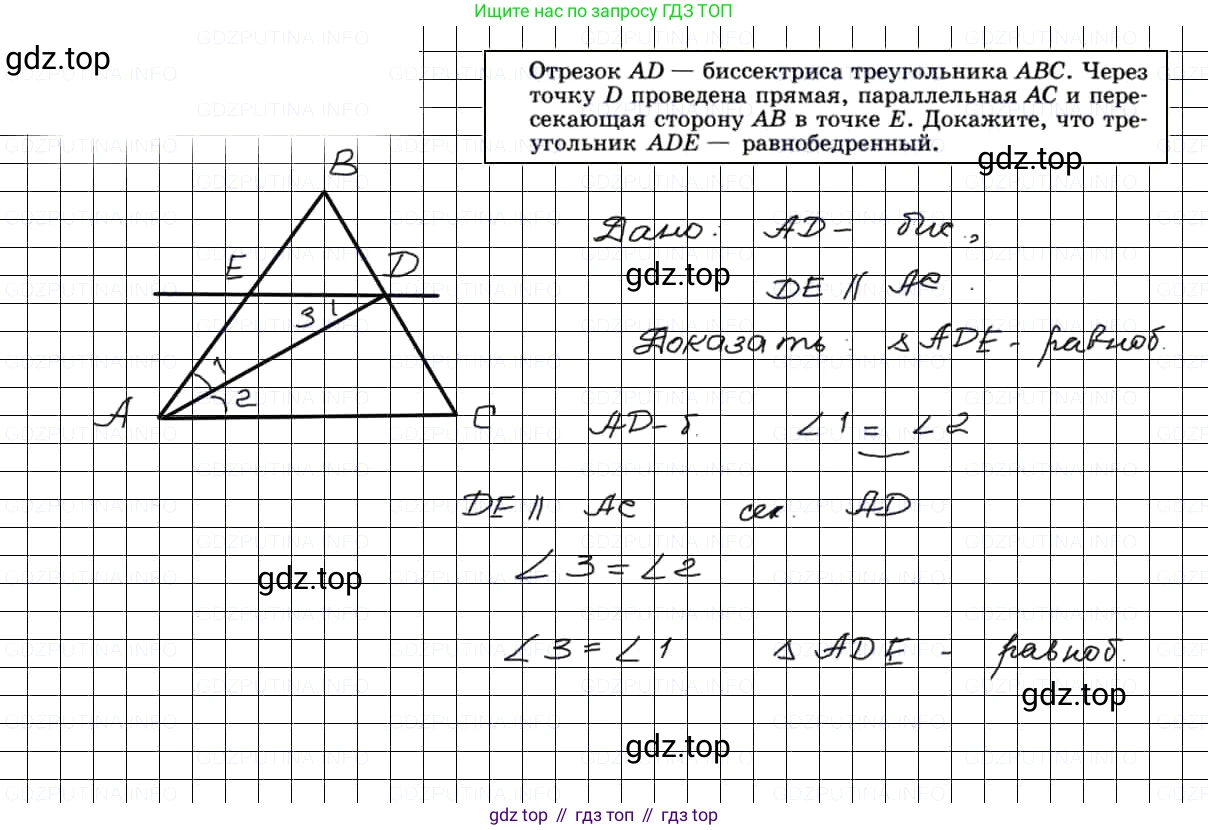 Ищите нас по запросу ГДЗ ТОП
gdz.top
Отрезок AD — биссектриса треугольника ABC. Через
точку D проведена прямая, параллельная AC и пере-
секающая сторону AB в точке E. Докажите, что тре-
угольник ADE — равнобедренный.
gdz.top
B
E D
3 1
1
2
A C
Дано: AD - бис.,
gdz.top
DE || AC.
Доказать: ▵ ADE - равноб.
AD - б. ∠1 = ∠2
DE || AC сек. AD
∠3 = ∠2
gdz.top
∠3 = ∠1 ▵ ADE - равноб.
gdz.top
gdz.top
GDZPUTINA.INFO
gdz top // гдз топ // гдз top